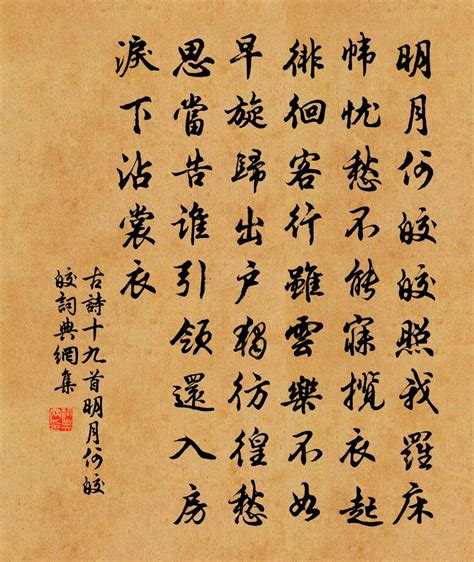 明月何皎皎照我羅床
幃忧愁不能寐攬衣起
徘徊客行雖雲樂不如
早旋歸出戶獨彷徨愁
思當告誰引領還入房
淚下沾裳衣
古詩十九首明月何皎
皎詞典網集